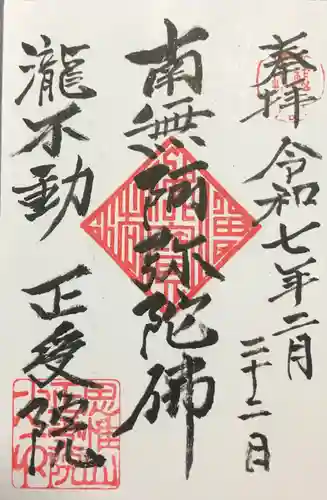 奉拝
令和七年二月
二十二日
南無阿弥陀佛
瀧不動
正受院